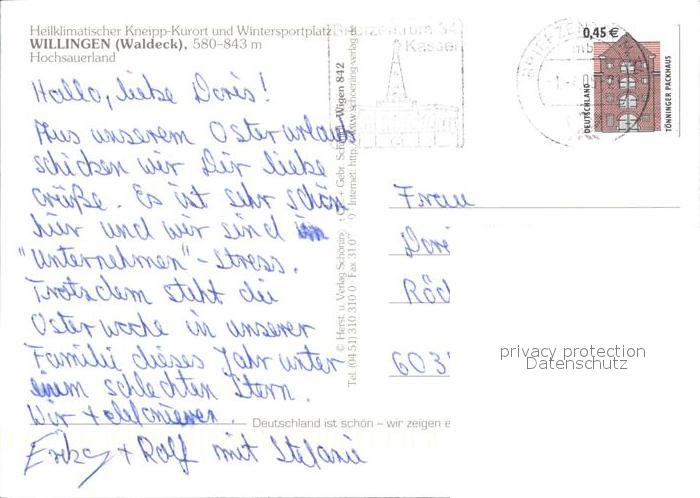 Heilklimatischer Kneipp-Kurort und Wintersportplatz
WILLINGEN (Waldeck), 580–843 m
Hochsauerland
Hallo, liebe Doris!
Aus unserem Osterurlaub
schicken wir Dir liebe
Grüße. Es ist sehr schön
hier und wir sind im
"Unternehmen"-Stress.
Trotzdem steht die
Osterwoche in unserer
Familie dieses Jahr unter
einem schlechten Stern.
Wir telefonieren.
Erika + Rolf mit Stefanie
Deutschland ist schön – wir zeigen e
© Herst. u. Verlag Schöning
Tel. (04 51) 310 310 0
Wigen 842
Briefzentrum 34
Kassel
BRIEFZEN
0,45 €
DEUTSCHLAND
TÖNNINGER PACKHAUS
Frau
Dori
Röd
603
privacy protection
Datenschutz